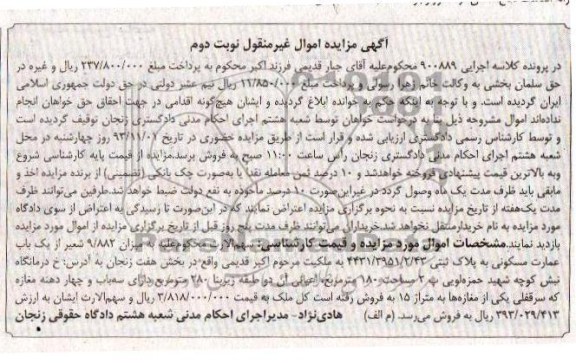 آگهی مزایده اموال غیرمنقول نوبت دوم
در پرونده کلاسه اجرایی ۹۰۰۸۸۹ محکوم‌علیه آقای جبار قدیمی فرزند اکبر محکوم به پرداخت مبلغ ۲۳۷/۸۰۰/۰۰۰ ریال و غیره در
حق سلمان بخشی به وکالت خانم زهرا رسولی و پرداخت مبلغ ۱۱/۸۵۰/۰۰۰ ریال نیم عشر دولتی در حق دولت جمهوری اسلامی
ایران گردیده است. و با توجه به اینکه حکم به خوانده ابلاغ گردیده و ایشان هیچ‌گونه اقدامی در جهت احقاق حق خواهان انجام
نداده‌اند اموال مشروحه ذیل بنا به درخواست خواهان توسط شعبه هشتم اجرای احکام مدنی دادگستری زنجان توقیف گردیده است
و توسط کارشناس رسمی دادگستری ارزیابی شده و قرار است از طریق مزایده حضوری در تاریخ ۹۳/۱۱/۰۱ روز چهارشنبه در محل
شعبه هشتم اجرای احکام مدنی دادگستری زنجان رأس ساعت ۱۱:۰۰ صبح به فروش برسد.مزایده از قیمت پایه کارشناسی شروع
وبه بالاترین قیمت پیشنهادی فروخته خواهدشد و ۱۰ درصد ثمن معامله نقدا یا به‌صورت چک بانکی (تضمینی) از برنده مزایده اخذ و
مابقی باید ظرف مدت یک ماه وصول گردد در غیراین‌صورت ۱۰ درصد ماخوذه به نفع دولت ضبط خواهد شد.طرفین می‌توانند ظرف
مدت یک‌هفته از تاریخ مزایده نسبت به نحوه برگزاری مزایده اعتراض نمایند که در این‌صورت تا رسیدگی به اعتراض از سوی دادگاه
مورد مزایده به نام خریدارمنتقل نخواهد شد.خریداران می‌توانند ظرف مدت پنج روز قبل از تاریخ برگزاری مزایده از اموال مورد مزایده
بازدید نمایند.مشخصات اموال مورد مزایده و قیمت کارشناسی: سهم‌الارث محکوم‌علیه به میزان ۹/۸۸۲ شعیر از یک باب
عمارت مسکونی به پلاک ثبتی ۴۴۳۱/۳۹۵۱/۲/۴۳ به ملکیت مرحوم اکبر قدیمی واقع در بخش هفت زنجان به آدرس: خ درمانگاه
نبش کوچه شهید حمزه‌لویی به مساحت ۱۸۰ مترمربع با اعیانی آن دو طبقه زیربنا ۲۸۰ مترمربع دارای سه‌باب و چهار دهنه مغازه
که سرقفلی یکی از مغازه‌ها به متراژ ۱۵ به فروش رفته است کل ملک به قیمت ۳/۸۱۸/۰۰۰/۰۰۰ ریال و سهم‌الارث ایشان به ارزش
۳۹۳/۰۲۹/۴۱۳ ریال به فروش می‌رسد. (م الف) هادی‌نژاد- مدیراجرای احکام مدنی شعبه هشتم دادگاه حقوقی زنجان